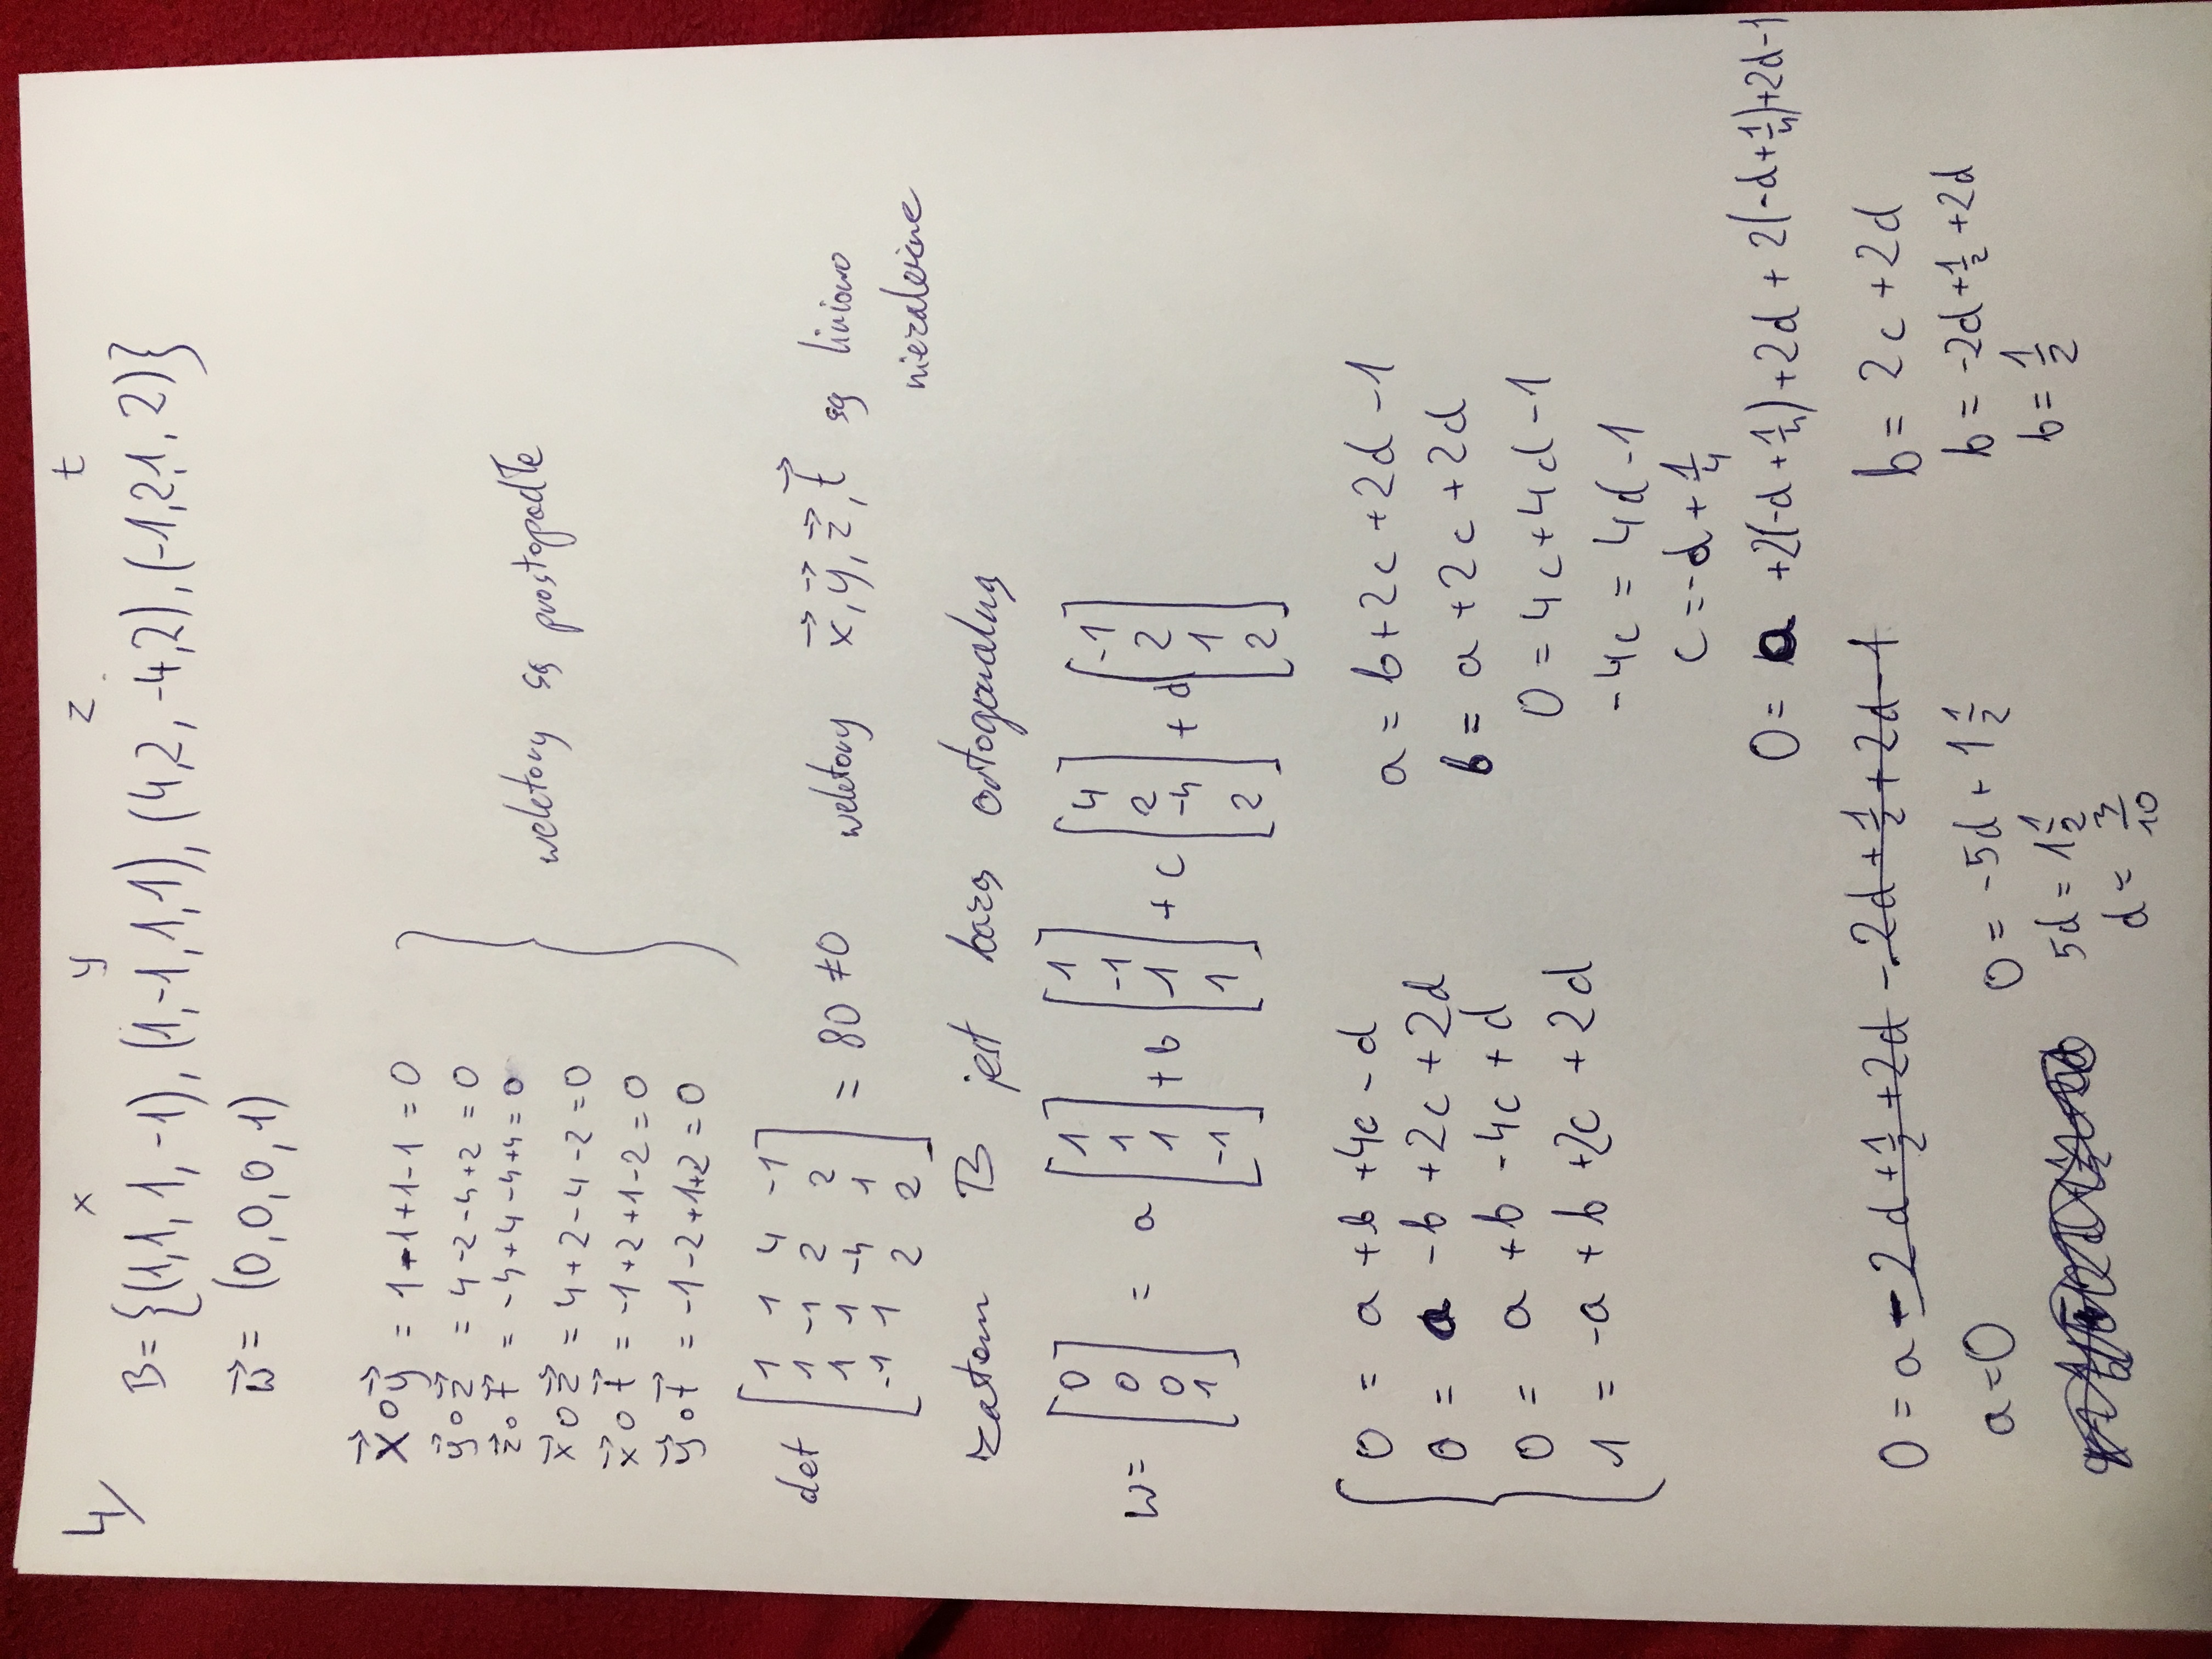 4/
x y z t
B = {(1,1,1,-1), (1,-1,1,1), (4,2,-4,2), (-1,2,1,2)}
w⃗ = (0,0,0,1)
x⃗∘y⃗ = 1-1+1-1 = 0
y⃗∘z⃗ = 4-2-4+2 = 0
z⃗∘t⃗ = -4+4-4+4 = 0
wektory są prostopadłe
x⃗∘z⃗ = 4+2-4-2 = 0
x⃗∘t⃗ = -1+2+1-2 = 0
y⃗∘t⃗ = -1-2+1+2 = 0
det [1 1 4 -1
1 -1 2 2
1 1 -4 1
-1 1 2 2] = 80 ≠ 0 wektory x⃗, y⃗, z⃗, t⃗ są liniowo
niezależne
zatem B jest bazą ortogonalną
w = [0 0 0 1] = a [1 1 1 -1] + b [1 -1 1 1] + c [4 2 -4 2] + d [-1 2 1 2]
0 = a + b + 4c - d
0 = a - b + 2c + 2d
0 = a + b - 4c + d
1 = -a + b + 2c + 2d
a = b + 2c + 2d - 1
b = a + 2c + 2d
0 = 4c + 4d - 1
-4c = 4d - 1
c = -d + 1/4
0 = a + 2(-d + 1/4) + 2d + 2(-d + 1/4) + 2d - 1
0 = a - 2d + 1/2 + 2d - 2d + 1/2 + 2d - 1
a = 0
0 = -5d + 1 1/2
5d = 1 1/2
d = 3/10
b = 2c + 2d
b = -2d + 1/2 + 2d
b = 1/2